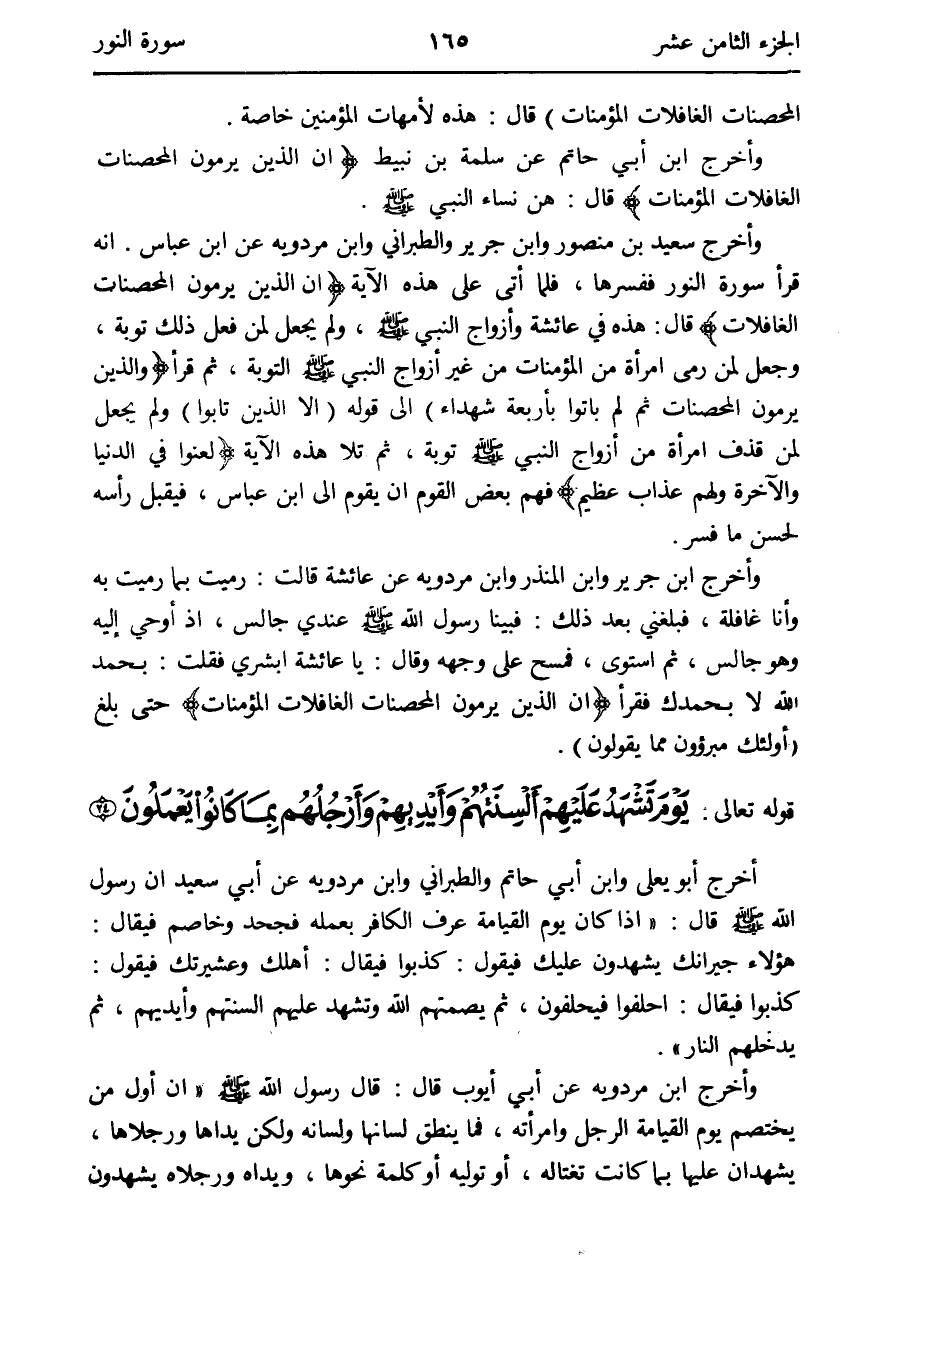 الجزء الثامن عشر ١٦٥ سورة النور
المحصنات الغافلات المؤمنات ) قال : هذه لأمهات المؤمنين خاصة .
وأخرج ابن أبي حاتم عن سلمة بن نبيط ﴿ ان الذين يرمون المحصنات
الغافلات المؤمنات ﴾ قال : هن نساء النبي ﷺ .
وأخرج سعيد بن منصور وابن جرير والطبراني وابن مردويه عن ابن عباس . انه
قرأ سورة النور ففسرها ، فلما أتى على هذه الآية ﴿ ان الذين يرمون المحصنات
الغافلات ﴾ قال : هذه في عائشة وأزواج النبي ﷺ ، ولم يجعل لمن فعل ذلك توبة ،
وجعل لمن رمى امرأة من المؤمنات من غير أزواج النبي ﷺ التوبة ، ثم قرأ ﴿ والذين
يرمون المحصنات ثم لم باتوا بأربعة شهداء ) الى قوله ( الا الذين تابوا ) ولم يجعل
لمن قذف امرأة من أزواج النبي ﷺ توبة ، ثم تلا هذه الآية ﴿ لعنوا في الدنيا
والآخرة ولهم عذاب عظيم ﴾ فهم بعض القوم ان يقوم الى ابن عباس ، فيقبل رأسه
لحسن ما فسر .
وأخرج ابن جرير وابن المنذر وابن مردويه عن عائشة قالت : رميت بما رميت به
وأنا غافلة ، فبلغني بعد ذلك : فبينا رسول الله ﷺ عندي جالس ، اذ أوحي إليه
وهو جالس ، ثم استوى ، فمسح على وجهه وقال : يا عائشة ابشري فقلت : بحمد
الله لا بحمدك فقرأ ﴿ ان الذين يرمون المحصنات الغافلات المؤمنات ﴾ حتى بلغ
( أولئك مبرؤون مما يقولون ) .
قوله تعالى : يَوْمَ تَشْهَدُ عَلَيْهِمْ أَلْسِنَتُهُمْ وَأَيْدِيهِمْ وَأَرْجُلُهُم بِمَا كَانُوا۟ يَعْمَلُونَ ٢٤
أخرج أبو يعلى وابن أبي حاتم والطبراني وابن مردويه عن أبي سعيد ان رسول
الله ﷺ قال : « اذا كان يوم القيامة عرف الكافر بعمله فجحد وخاصم فيقال :
هؤلاء جيرانك يشهدون عليك فيقول : كذبوا فيقال : أهلك وعشيرتك فيقول :
كذبوا فيقال : احلفوا فيحلفون ، ثم يصمتهم الله وتشهد عليهم السنتهم وأيديهم ، ثم
يدخلهم النار » .
وأخرج ابن مردويه عن أبي أيوب قال : قال رسول الله ﷺ « ان أول من
يختصم يوم القيامة الرجل وامرأته ، فما ينطق لسانها ولسانه ولكن يداها ورجلاها ،
يشهدان عليها بما كانت تغتاله ، أو توليه أو كلمة نحوها ، ويداه ورجلاه يشهدون